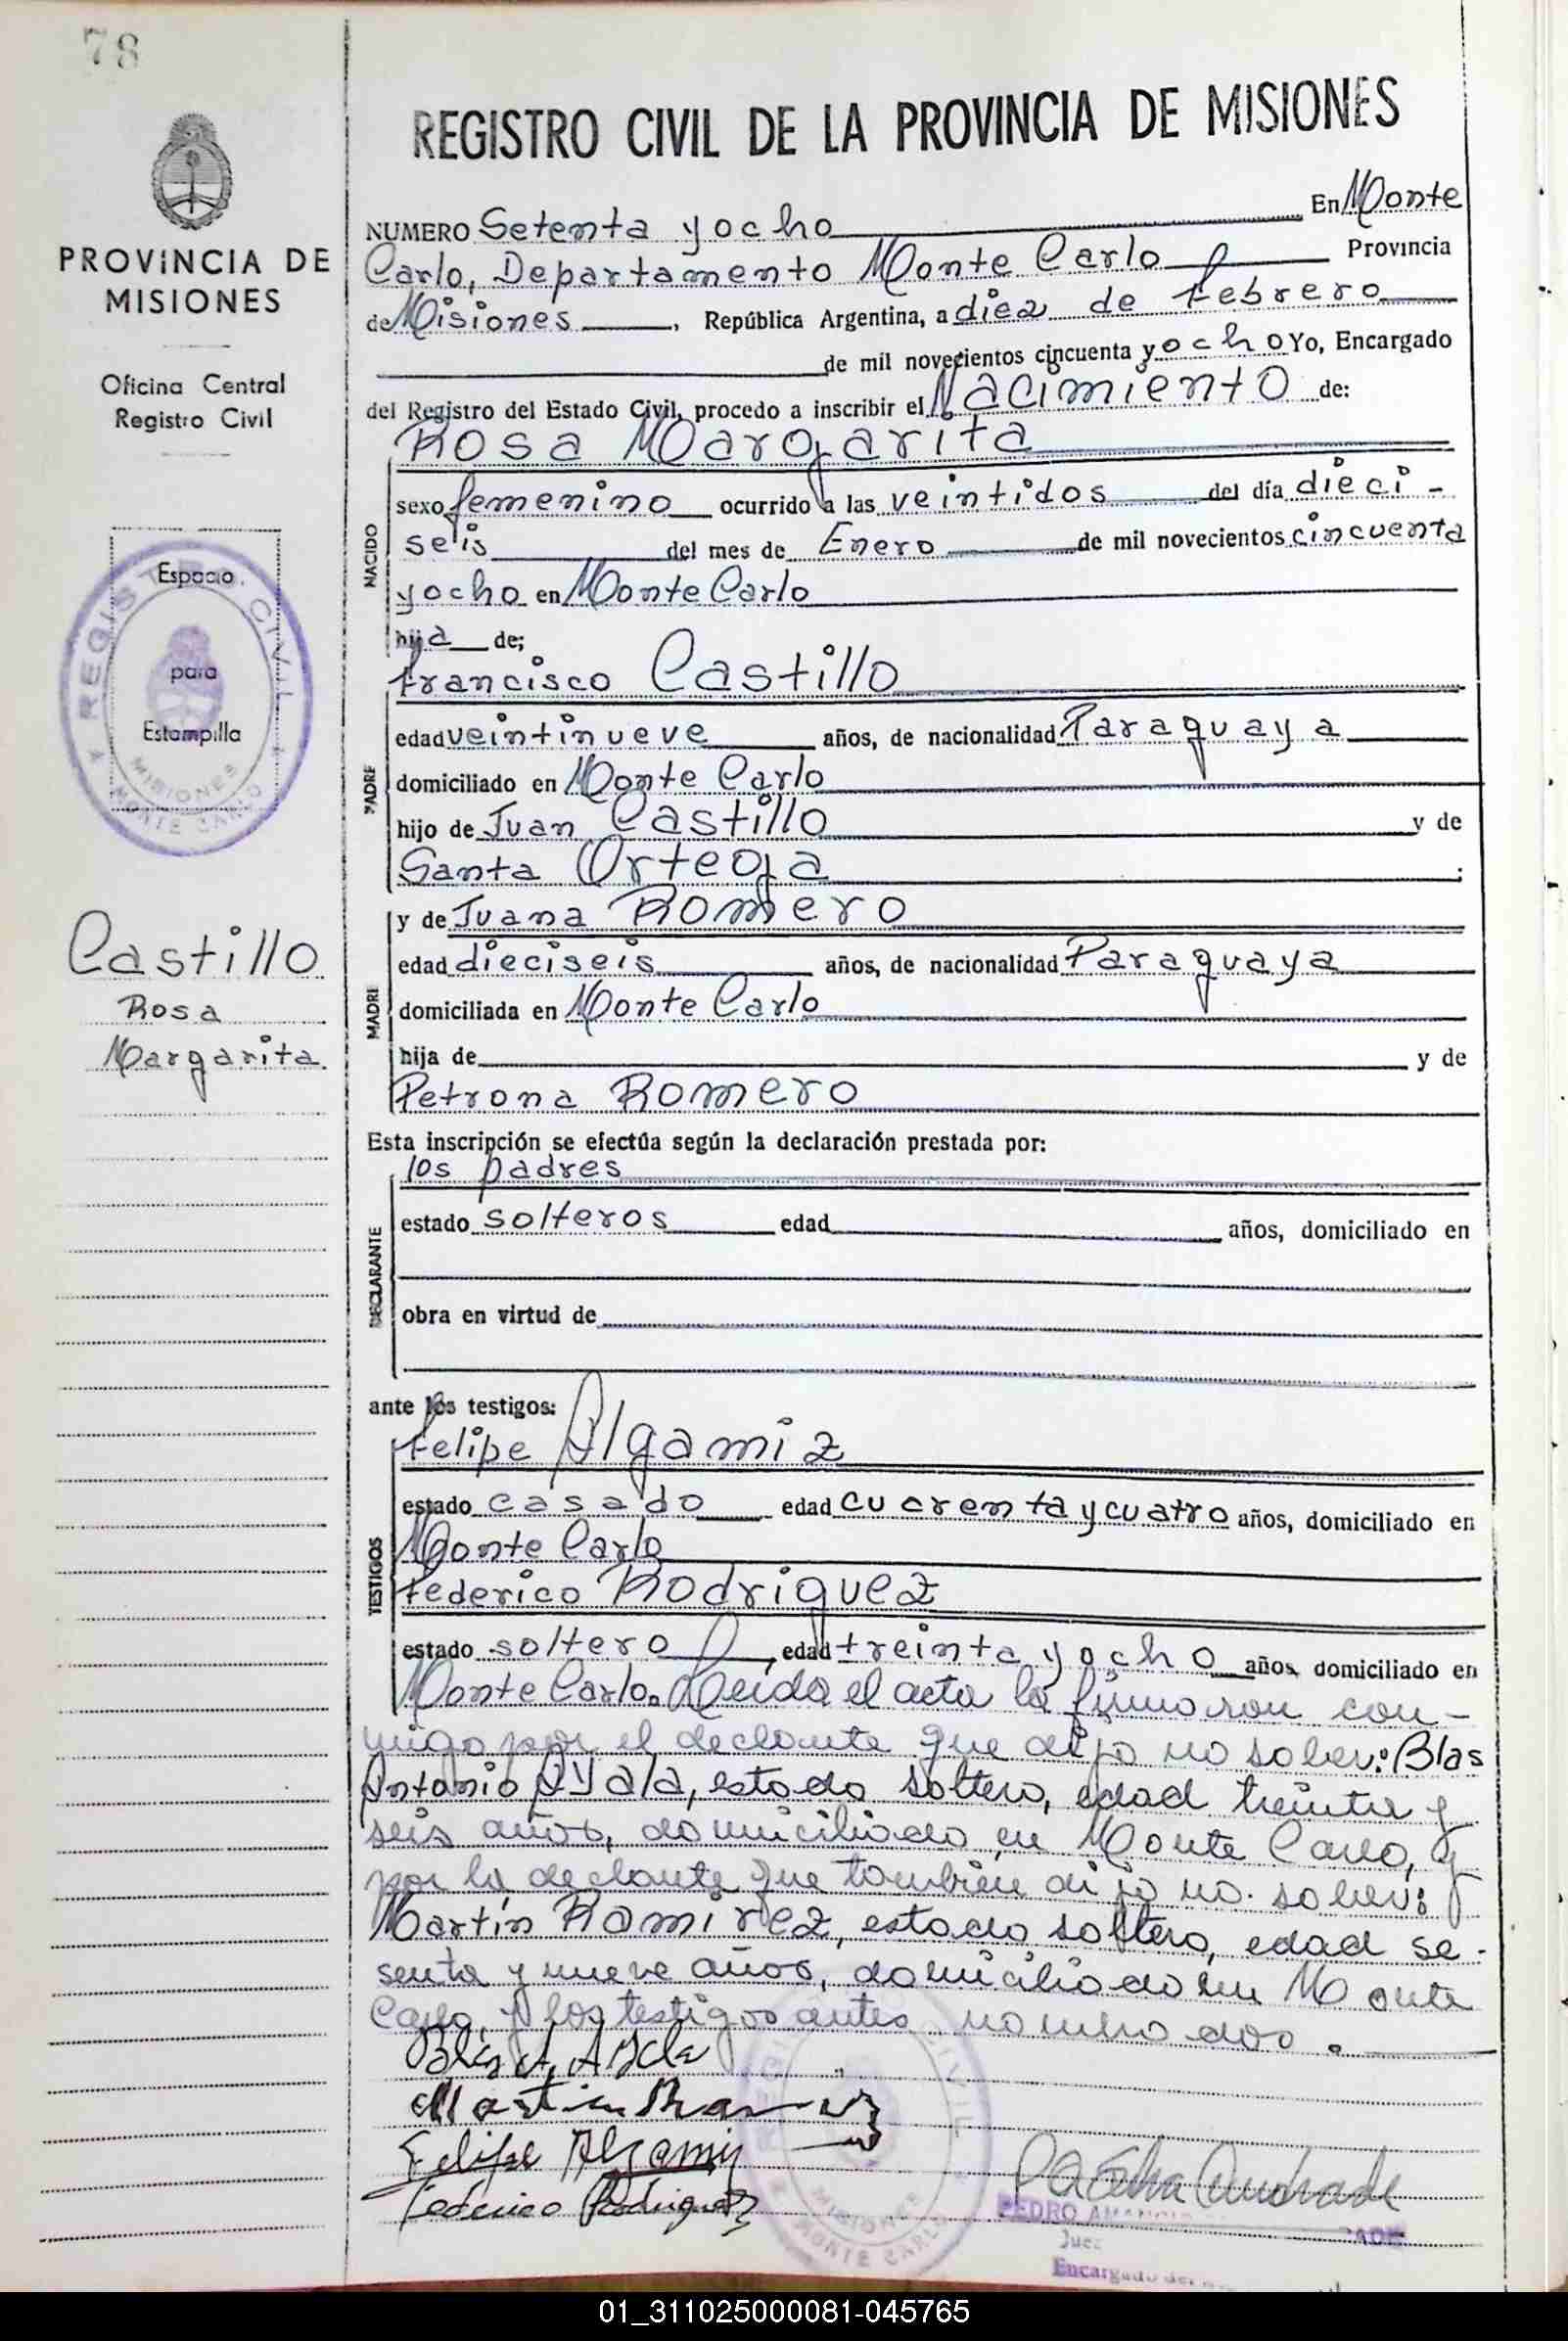 78
PROVINCIA DE
MISIONES
Oficina Central
Registro Civil
Espacio
para
Estampilla
REGISTRO CIVIL
MISIONES
MONTE CARLO
Castillo
Rosa
Margarita
REGISTRO CIVIL DE LA PROVINCIA DE MISIONES
NUMERO Setenta y ocho En Monte
Carlo, Departamento Monte Carlo Provincia
de Misiones, República Argentina, a diez de febrero
de mil novecientos cincuenta y ocho Yo, Encargado
del Registro del Estado Civil, procedo a inscribir el Nacimiento de:
Rosa Margarita
NACIDO
sexo femenino ocurrido a las veintidos del día dieci-
seis del mes de Enero de mil novecientos cincuenta
y ocho en Monte Carlo
hija de;
Francisco Castillo
PADRE
edad veintinueve años, de nacionalidad Paraguaya
domiciliado en Monte Carlo
hijo de Juan Castillo y de
Santa Ortega ;
y de Juana Romero
MADRE
edad dieciseis años, de nacionalidad Paraguaya
domiciliada en Monte Carlo
hija de y de
Petrona Romero
Esta inscripción se efectúa según la declaración prestada por:
los padres
DECLARANTE
estado solteros edad años, domiciliado en
obra en virtud de
ante los testigos:
Felipe Algamiz
TESTIGOS
estado casado edad cuarenta y cuatro años, domiciliado en
Monte Carlo
Federico Rodriguez
estado soltero, edad treinta y ocho años, domiciliado en
Monte Carlo. Leida el acta la firmaron con-
migo por el declante que dijo no saber: Blas
Antonio Ayala, estado soltero, edad treinta y
seis años, domiciliado en Monte Carlo, y
por la declante que tambien dijo no saber:
Martín Ramirez, estado soltero, edad se-
senta y nueve años, domiciliado en Monte
Carlo, y los testigos antes nombrados.
Blas A. Ayala
Martin
Felipe Algamiz
Federico Rodriguez
Andrade
PEDRO
Juez
Encargado del
REGISTRO CIVIL
MISIONES
MONTE CARLO
01_311025000081-045765